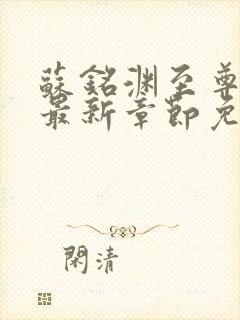 蘇銘淵至尊
最新章節免
閑清